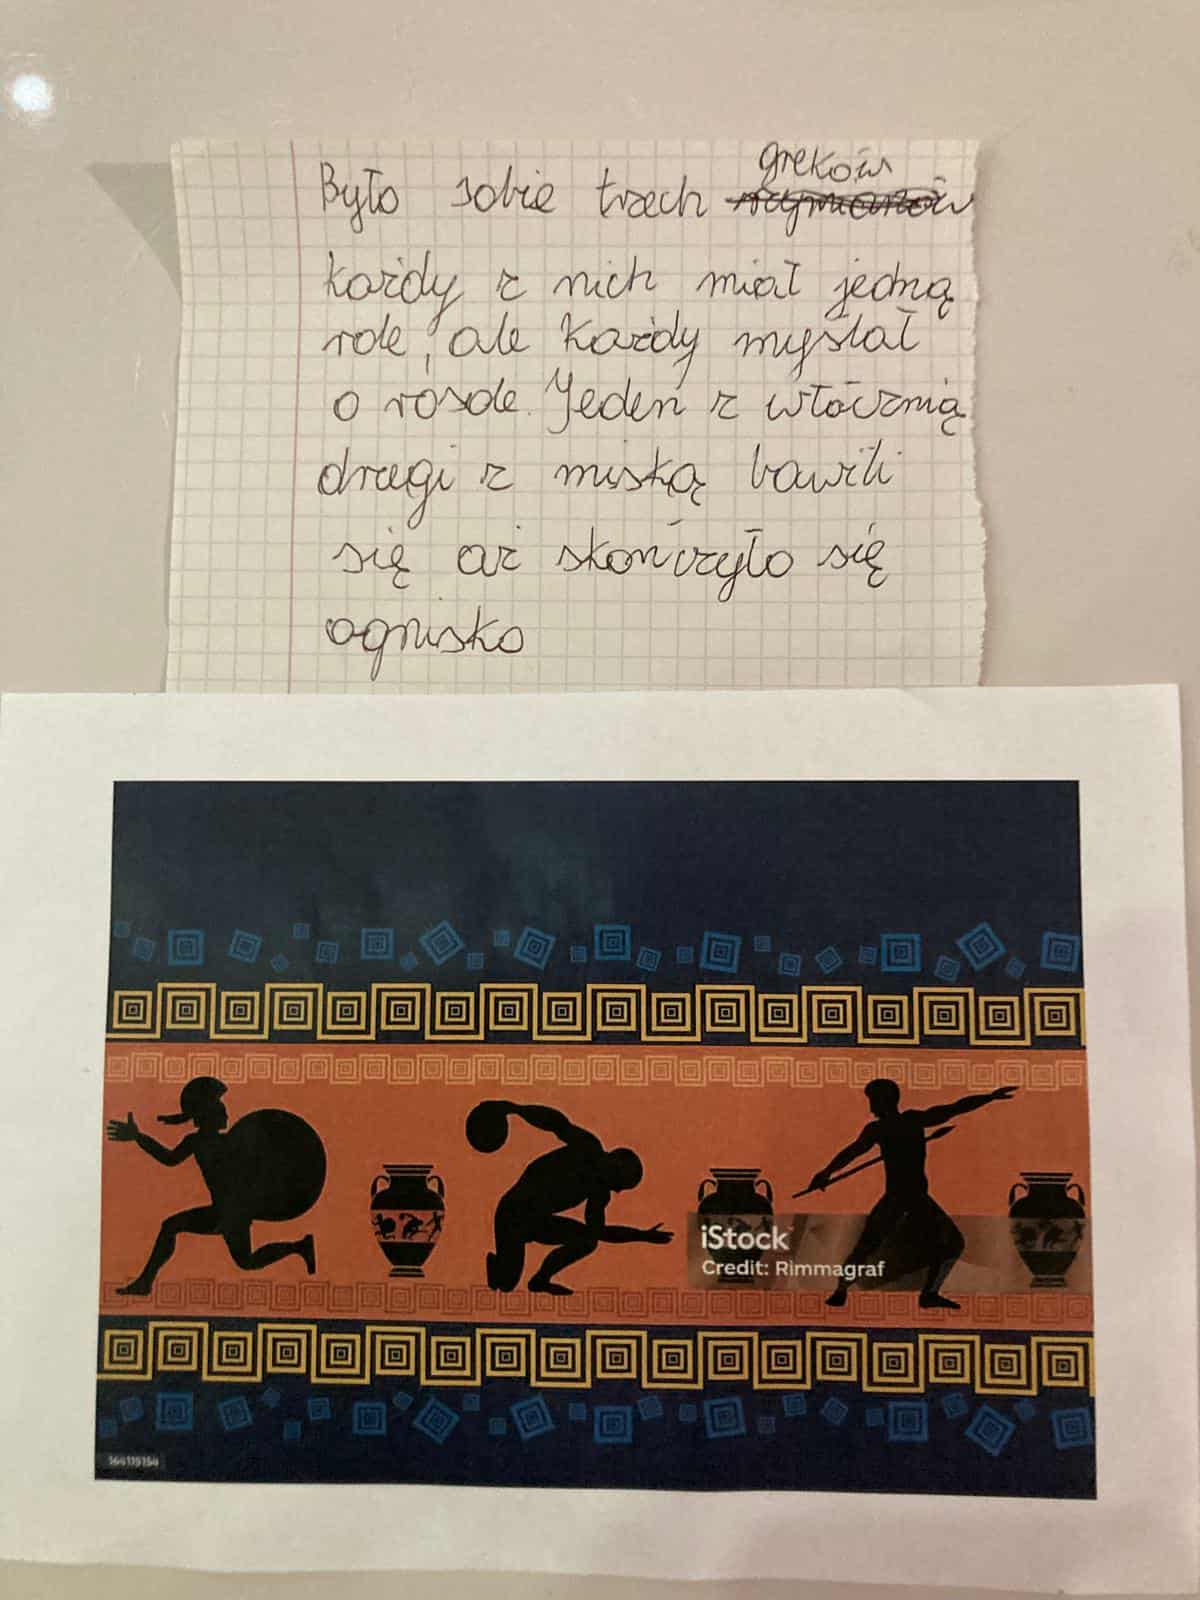 Było sobie trzech greków
każdy z nich miał jedną
role, ale każdy myślał
o rósole. Jeden z włócznią
drugi z miską bawili
się aż skończyło się
ognisko
iStock
Credit: Rimmagraf